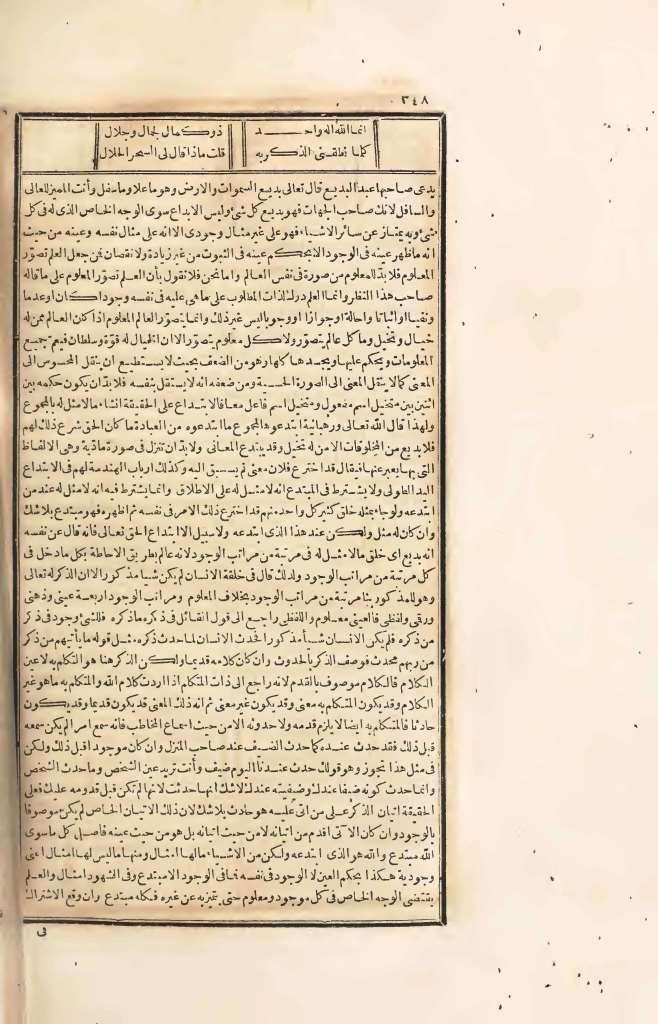 ٣٤٨
انما الله اله واحد ذو كمال لجمال وجلال
كلما نطقنى الذكر به قلت ماذا قال لى السحر الحلال
يدعى صاحبها عبد البديع قال تعالى بديع السموات والارض وهو ما علا وما سفل وأنت المميز للعالى
والسافل لانك صاحب الجهات فهو بديع كل شئ وليس الابداع سوى الوجه الخاص الذى له فى كل
شئ وبه يمتاز عن سائر الاشياء فهو على غير مثال وجودى الا انه على مثال نفسه وعينه من حيث
انه ما ظهر عينه فى الوجود الا بحكم عينه فى الثبوت من غير زيادة ولا نقصان فمن جعل العلم تصوّر
المعلوم فلا بدّ للمعلوم من صورة فى نفس العالم واما نحن فلا نقول بأن العلم تصوّر المعلوم على ما قاله
صاحب هذا النظر وانما العلم درك ذات المطلوب على ما هى عليه فى نفسه وجودا كان او عدما
ونفيا واثباتا واحالة او جوازا او وجوبا ليس غير ذلك وانما يتصوّر العالم المعلوم اذا كان العالم ممن له
خيال وتخيل وما كل عالم يتصوّر ولا كل معلوم يتصوّر الا ان الخيال له قوة وسلطان فيعم جميع
المعلومات ويحكم عليها ويجسدها كلها وهو من الضعف بحيث لا يستطيع ان ينقل المحسوس الى
المعنى كما لا ينقل المعنى الى الصورة الحسية ومن ضعفه انه لا يستقل بنفسه فلا بد ان يكون حكمه بين
اثنين بين متخيل اسم مفعول ومتخيل اسم فاعل معا فالابتداع على الحقيقة انشاء ما لا مثل له بالمجموع
ولهذا قال الله تعالى ورهبانية ابتدعوها بمجموع ما ابتدعوه من العبادة ما كان الحق شرع ذلك لهم
فلا بديع من المخلوقات الا من له تخيل وقد يبتدع المعانى ولا بد ان تنزل فى صورة مادّية وهى الالفاظ
التى بها يعبر عنها فيقال قد اخترع فلان معنى لم يسبق اليه وكذلك ارباب الهندسة لهم فى الابتداع
اليد الطولى ولا يشترط فى المبتدع انه لا مثل له على الاطلاق وانما يشترط فيه انه لا مثل له عند من
ابتدعه ولو جاء بمثله خلق كثير كل واحد منهم قد اخترع ذلك الامر فى نفسه ثم اظهره فهو مبتدع بلا شك
وان كان له مثل ولكن عند هذا الذى ابتدعه ولا سبيل الا ابتداع الحق تعالى فانه قال عن نفسه
انه بديع اى خلق ما لا مثل له فى مرتبة من مراتب الوجود لانه عالم بطريق الاحاطة بكل ما دخل فى
كل مرتبة من مراتب الوجود ولذلك قال فى خلقة الانسان لم يكن شيأ مذكورا لان الذكر له تعالى
وهو للمذكور بنا مرتبة من مراتب الوجود بخلاف المعلوم ومراتب الوجود اربعة عينى وذهنى
ورقى ولفظى فالعينى معلوم واللفظى راجع الى قول القائل فى ذكره ما ذكره فللشئ وجود فى ذكر
من ذكره فلم يكن الانسان شيأ مذكورا فحدث الانسان لما حدث ذكره مثل قوله ما يأتيهم من ذكر
من ربهم محدث فوصف الذكر بالحدوث وان كان كلامه قديما ولكن الذكر هنا هو التكلم به لا عين
الكلام فالكلام موصوف بالقدم لانه راجع الى ذات المتكلم اذا اردت كلام الله والمتكلم به ما هو غير
الكلام وقد يكون المتكلم به معنى وقد يكون غير معنى ثم انه ذلك المعنى قد يكون قديما وقد يكون
حادثا فالمتكلم به ايضا لا يلزم قدمه ولا حدوثه الا من حيث اسماع المخاطب فانه سمع امرا لم يكن سمعه
قبل ذلك فقد حدث عنده كما حدث الضيف عند صاحب المنزل وان كان موجودا قبل ذلك ولكن
فى مثل هذا تجوز وهو قولك حدث عندنا اليوم ضيف وأنت تريد عين الشخص وما حدث الشخص
وانما حدث كونه ضيفا عندك وضيفيته عندك لا شك انها حدثت لانها لم تكن قبل قدومه عليك فعلى
الحقيقة اتيان الذكر على من اتى عليه هو حادث بلا شك لان ذلك الاتيان الخاص لم يكن موصوفا
بالوجود وان كان الآتى اقدم من اتيانه لا من حيث اتيانه بل هو من حيث عينه فاصل كل ما سوى
الله مبتدع والله هو الذى ابتدعه ولكن من الاشياء ما لها امثال ومنها ما ليس لها امثال اعنى
وجودية هكذا يحكم العين لا الوجود فى نفسه فما فى الوجود الا مبتدع وفى الشهود امثال والعلم
يقتضى الوجه الخاص فى كل موجود ومعلوم حتى يتميز به عن غيره فكله مبتدع وان وقع الاشتراك
فى